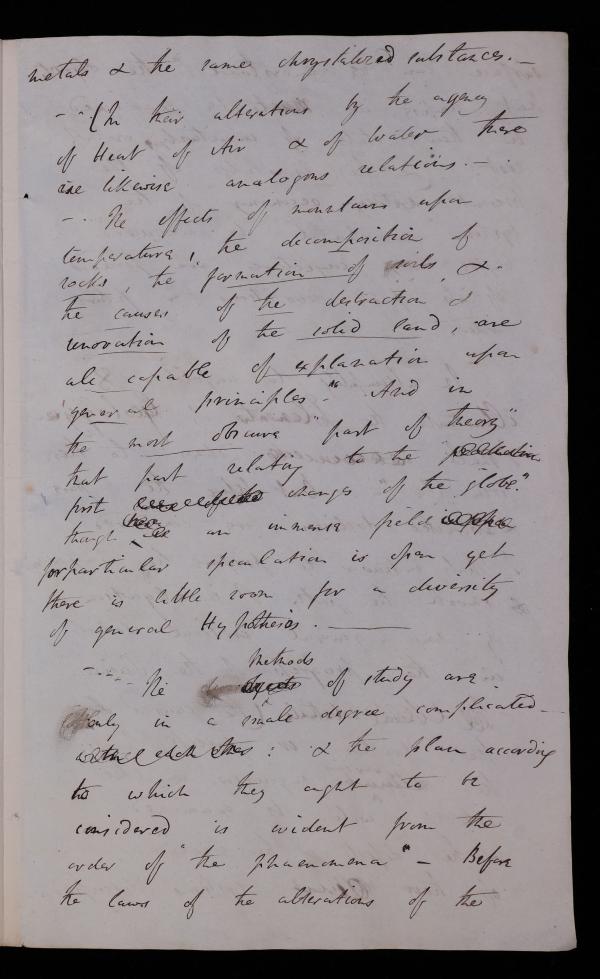 metals & the same chrystalized substances. –
– " (In their alterations by the agency
of Heat of Air & of Water there
are likewise analogous relations. –
–. The effects of mountains upon
temperature, the decomposition of
rocks, the formation of soils, &
the causes of the destruction &
renovation of the solid land, are
all capable of explanation upon
general principles." And in
the most obscure "part of theory"
that part relating to the
first changes "of the globe."
though an immense field
for particular speculation is open yet
there is little room for a diversity
of general Hypothesis. ———
Methods
The of study are
only in a small degree complicated –
with each other : & the plan according
to which they ought to be
considered is evident from the
order of "the phaenomena" – Before
the laws of the alterations of the